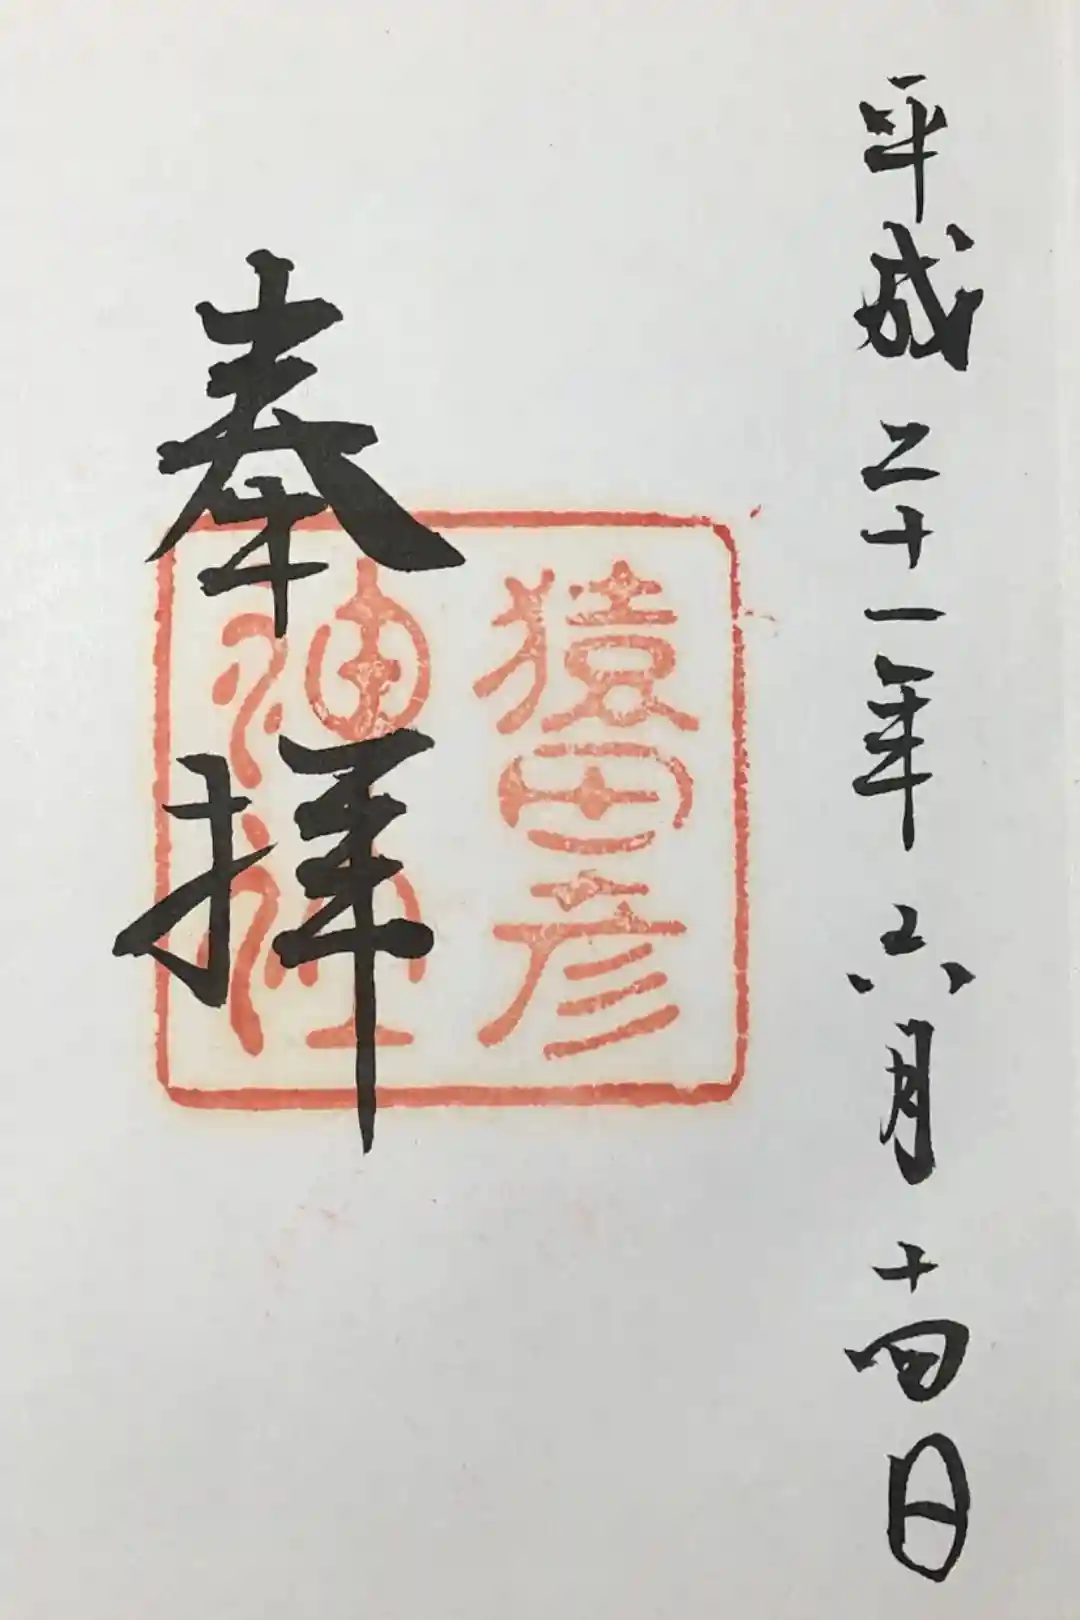 平成二十一年六月十四日
猿田彦
神社
奉拝